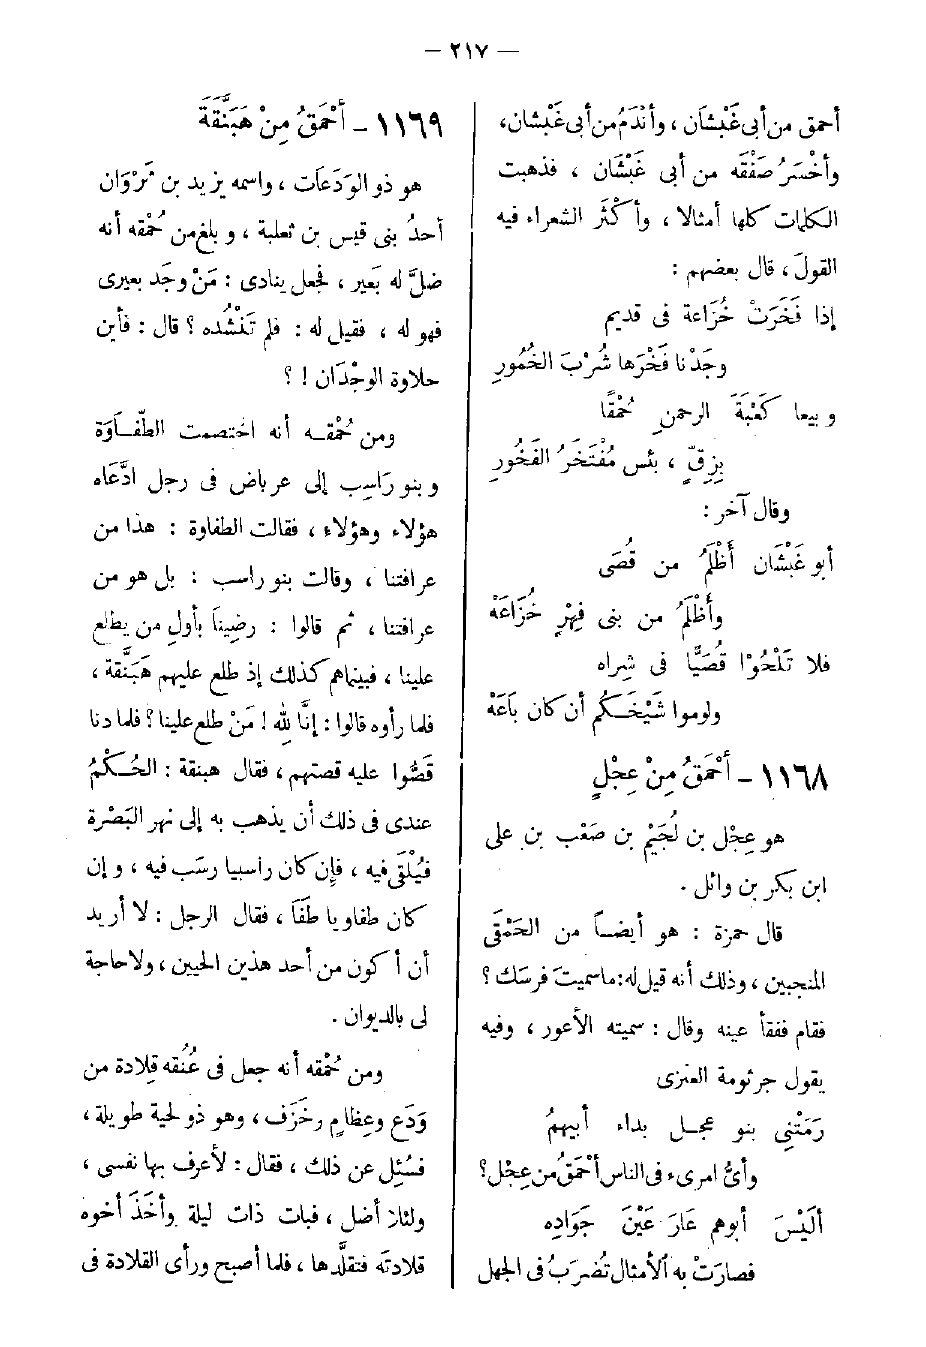 — ٢١٧ —
أحمق من أبى غَبْشَان ، وأنْدَمُ من أبى غَبْشان،
وأخْسَرُ صَفْقَه من أبى غَبْشَان ، فذهبت
الكلمات كلها أمثالا ، وأكْثَر الشعراء فيه
القولَ ، قال بعضهم :
إذا فَخَرَتْ خُزَاعة فى قديم
وجَدْنا فَخْرَها شُرْبَ الخُمُورِ
وبيعا كَعْبَةَ الرحمنِ حُمْقًا
بِزِقٍّ ، بئس مُفْتَخَرُ الفَخُورِ
وقال آخر :
أبو غَبْشَان أَظْلَمُ من قُصَى
وأَظْلَمُ من بنى فِهْرٍ خُزَاعَهْ
فلا تَلْحُوْا قُصَيًّا فى شِراه
ولوموا شَيْخَكُم أن كان بَاعَهْ
١١٦٨ - أَحْمَقُ مِنْ عِجْلٍ
هو عِجْل بن لُجَيْم بن صَعْب بن على
ابن بكر بن وائل .
قال حمزة : هو أيضاً من الحَمْقَى
المنجبين ، وذلك أنه قيل له: ما سميتَ فرسَك ؟
فقام ففقأ عينه وقال : سميته الأعور ، وفيه
يقول جرثومة العنزى
رَمَتْنِي بنو عجل بداء أبيهمُ
وأىُّ امرىء فى الناس أحْمَقُ من عِجْل؟
ألَيْسَ أبوهم عَارَ عَيْنَ جَوَادِه
فصارَتْ به الأمثال تُضرَبُ فى الجهل
١١٦٩ - أَحْمَقُ مِنْ هَبَنَّقَةَ
هو ذو الوَدَعَات ، واسمه يزيد بن ثَرْوَان
أحدُ بنى قيس بن ثعلبة ، وبلغ من حُمْقه أنه
ضلَّ له بَعير ، فجعل ينادى : مَنْ وجَد بعيرى
فهو له ، فقيل له : فلم تَنْشُده ؟ قال : فأين
حلاوة الوِجْدَان ! ؟
ومن حُمْقه أنه اختصمت الطُّفَاوَة
وبنو راسِب إلى عرباض فى رجل ادَّعَاه
هؤلاء وهؤلاء ، فقالت الطفاوة : هذا من
عرافتنا ، وقالت بنو راسب : بل هو من
عرافتنا ، ثم قالوا : رضِيناَ بأولِ من يطلع
علينا ، فبيناهم كذلك إذ طلع عليهم هَبَنَّقة ،
فلما رأوه قالوا : إنَّا لله ! مَنْ طلع علينا ؟ فلما دنا
قَصُّوا عليه قصتهم ، فقال هبنقة : الحُكْمُ
عندى فى ذلك أن يذهب به إلى نهر البَصْرة
فيُلْقَى فيه ، فإن كان راسبيا رسَب فيه ، وإن
كان طفاويا طَفَا ، فقال الرجل : لا أريد
أن أكون من أحد هذين الحيين ، ولا حاجة
لى بالديوان .
ومن حُمْقه أنه جعل فى عُنُقه قِلادة من
وَدَع وعِظامٍ وخَزَف ، وهو ذو لحية طويلة ،
فسُئِل عن ذلك ، فقال : لأعرف بها نفسى ،
ولئلا أضل ، فبات ذات ليلة وأخَذَ أخوه
قلادتَه فتقلَّدها ، فلما أصبح ورأى القلادة فى